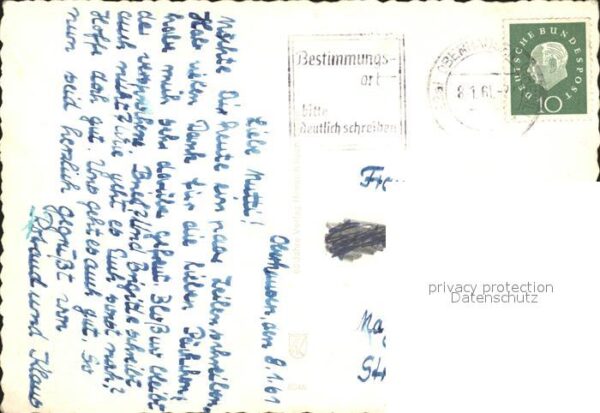 Bestimmungs-
ort
bitte
deutlich schreiben
8.1.61.-
DEUTSCHE BUNDESPOST
10
Fr
Ma
St
privacy protection
Datenschutz
den 8.1.61
Liebe Mutti!
Möchte Dir heute ein paar Zeilen schreiben,
Hab vielen Dank für die lieben
habe mich sehr darüber gefreut. Bloß wo bleibt
der versprochene Brief? Und Brigitte schreibt
auch nicht? Wie geht es Euch sonst noch?
Hoffe doch gut. Uns geht es auch gut. So
nun seid herzlich gegrüßt von
und Klaus